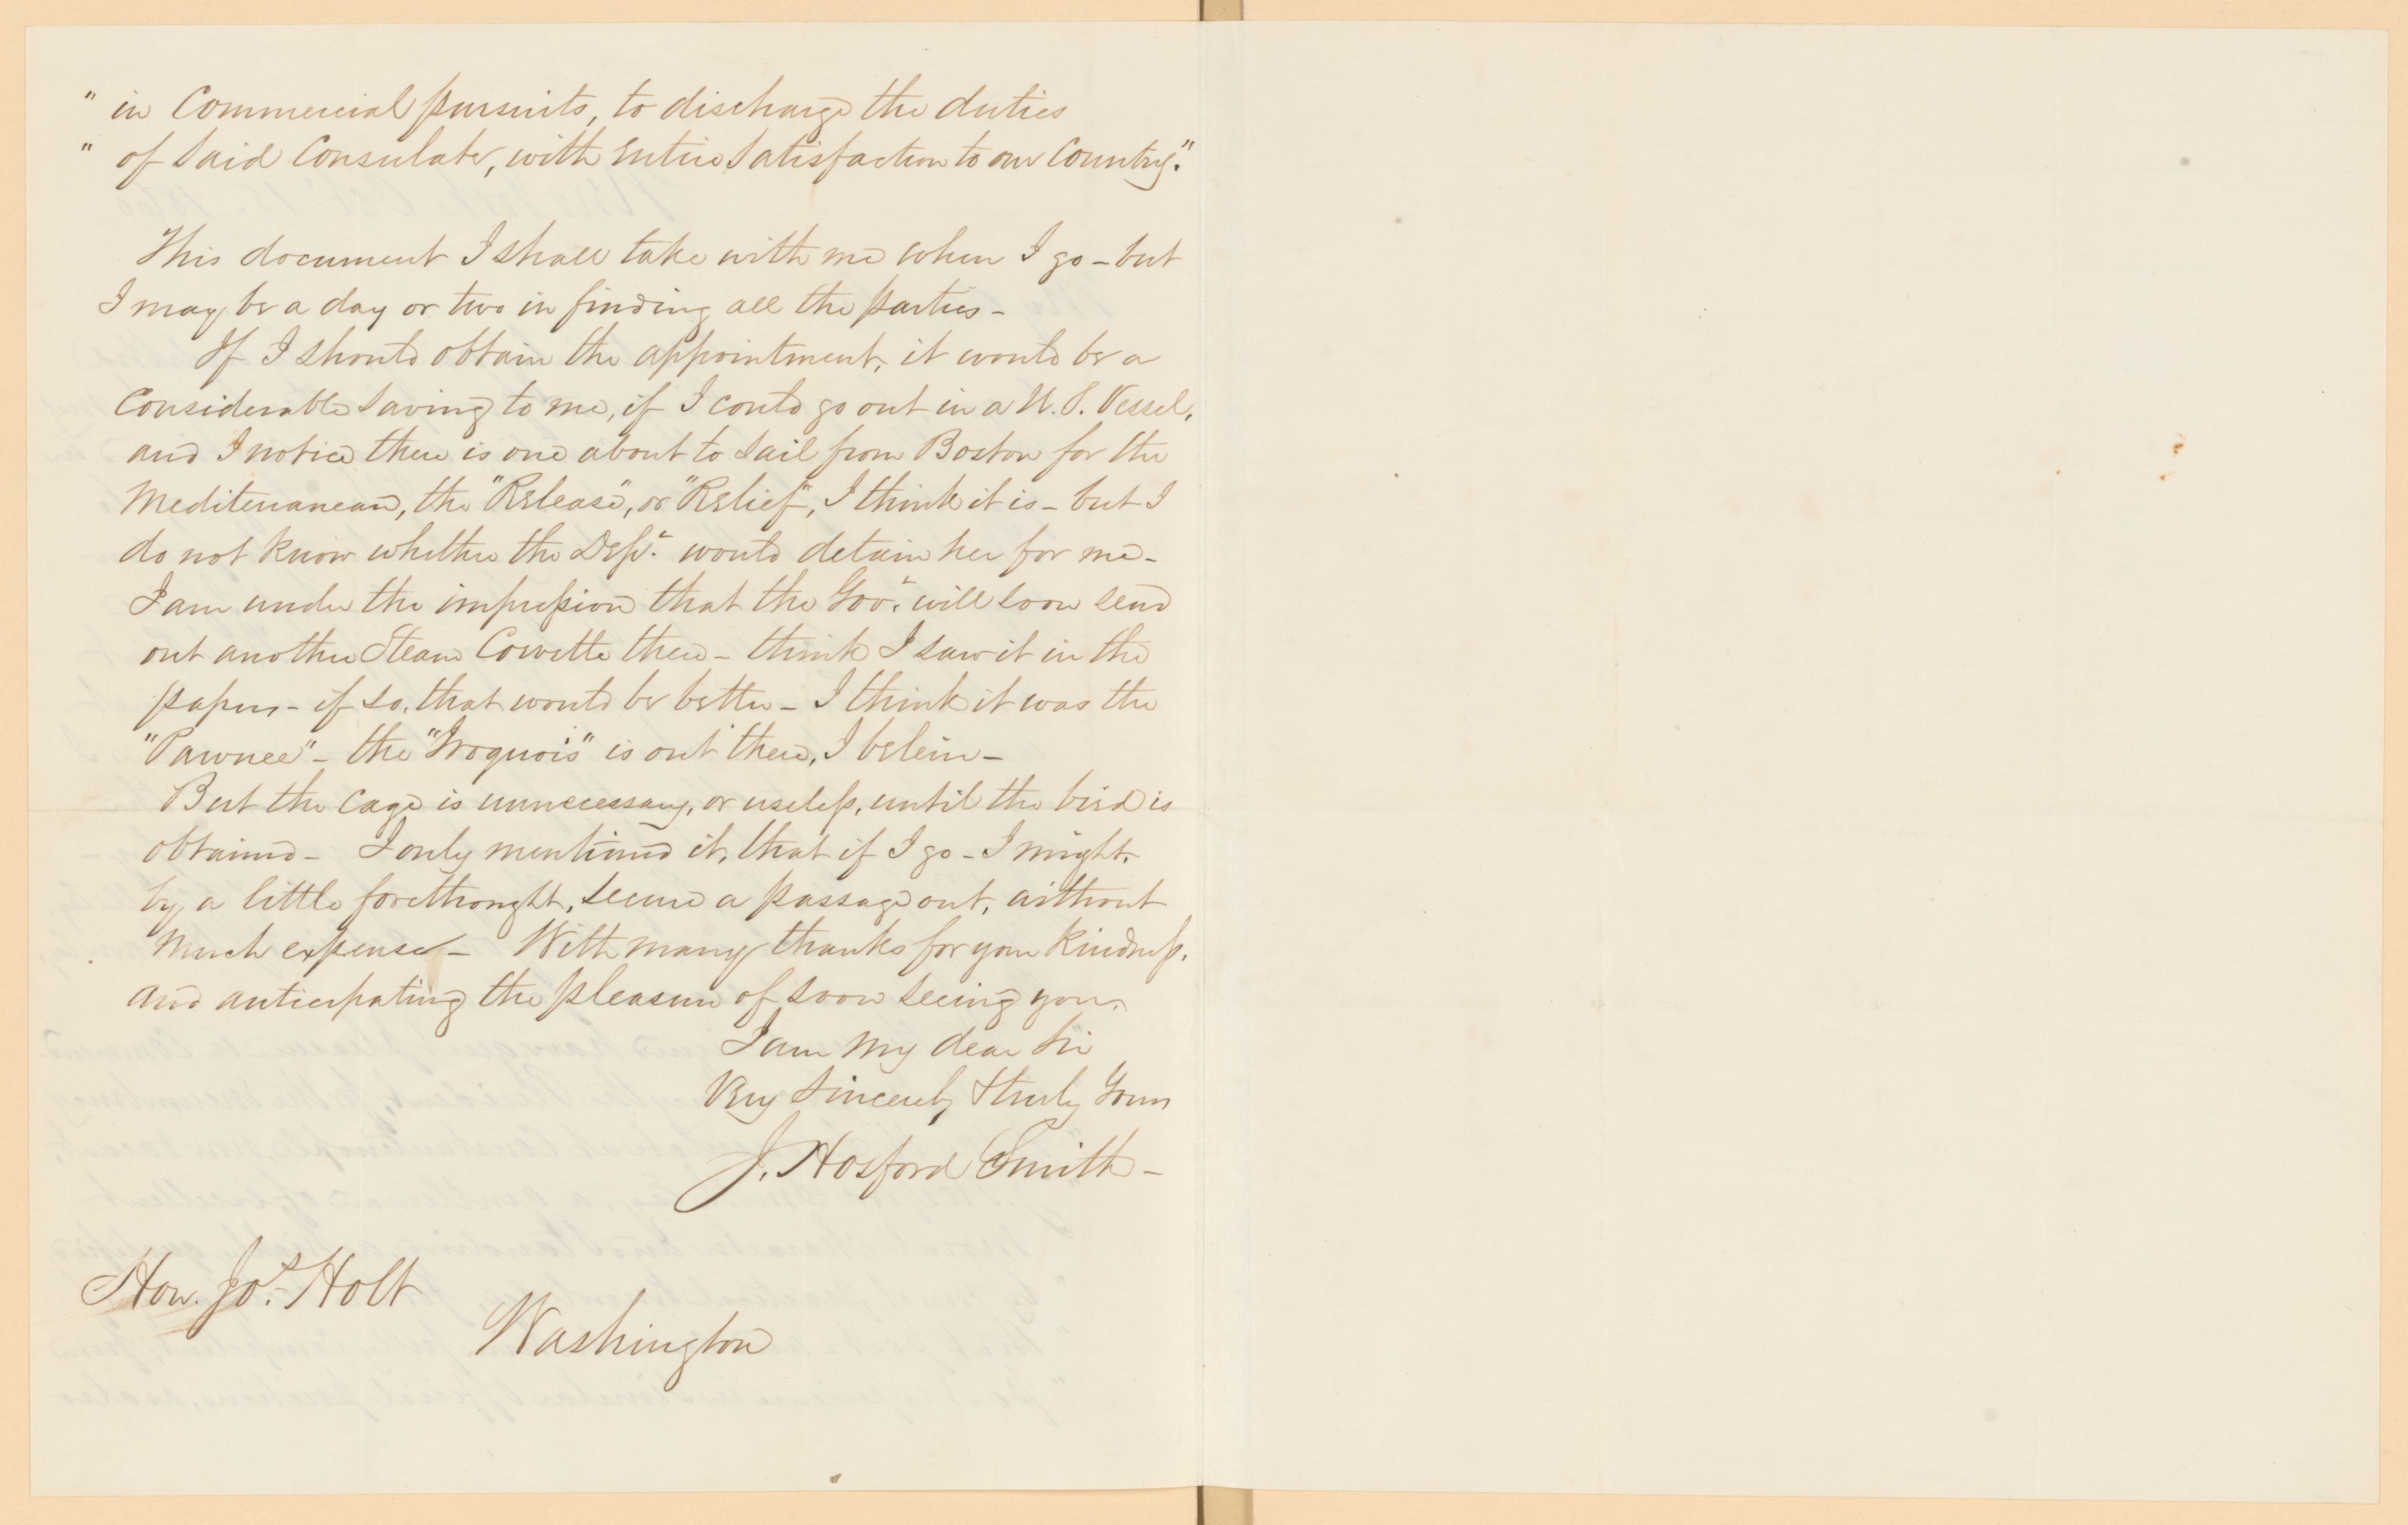 " in Commercial pursuits, to discharge the duties
" of said Consulate, with entire satisfaction to our Country."
This document I shall take with me when I go - but
I may be a day or two in finding all the parties -
If I should obtain the appointment, it would be a
Considerable saving to me, if I could go out in a U.S. Vessel,
and I notice there is one about to sail from Boston for the
Mediterranean, the "Release", or "Relief", I think it is - but I
do not know whether the Dept. would detain her for me -
I am under the impression that the Govt. will soon send
out another Steam Corvette there - think I saw it in the
papers - if so, that would be better - I think it was the
"Pawnee" - the "Iroquois" is out there, I beleive -
But the cage is unnecessary, or useless, until the bird is
obtained - I only mentioned it, that if I go - I might,
by a little forethought, secure a passage out, without
much expense - With many thanks for your kindness,
and anticipating the pleasure of soon seeing you,
I am my dear Sir
Very sincerely & truly Yours
J. Hosford Smith -
Hon. Jos. Holt
Washington